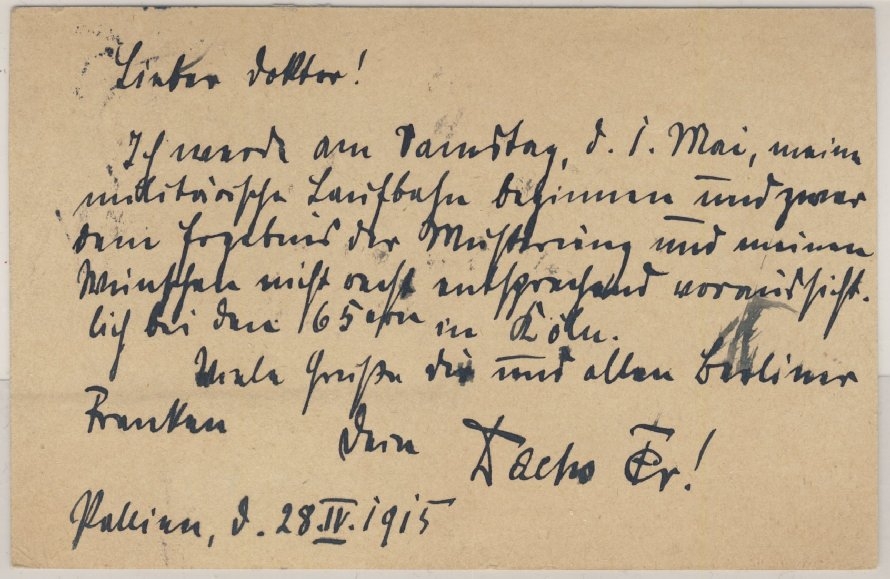 Lieber Doktor!
Ich werde am Samstag, d. 1. Mai, meine
militärische Laufbahn beginnen und zwar
dem Ergebnis der Musterung und meinen
Wünschen nicht recht entsprechend voraussicht-
lich bei den 65ern in Köln.
Viele Grüße dir und allen Berliner
Franken
Dein
d. 28.IV.1915